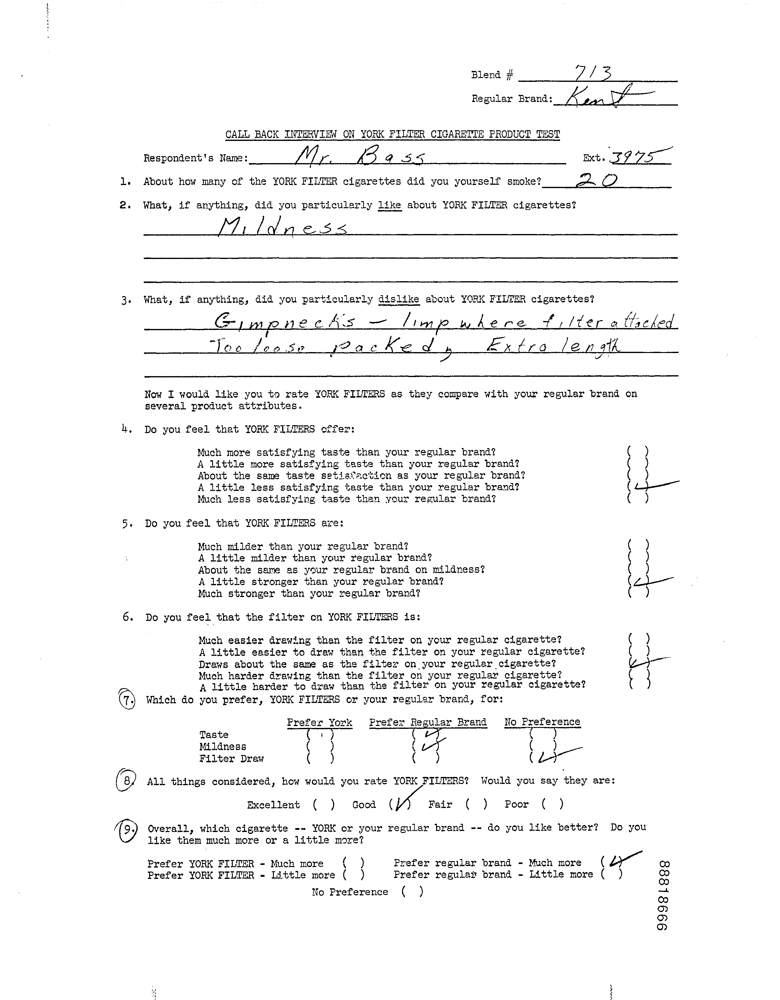 Blend # 713
Regular Brand: Kent
CALL BACK INTERVIEW ON YORK FILTER CIGARETTE PRODUCT TEST
Respondent's Name: Mr. Bass Ext. 3975
1. About how many of the YORK FILTER cigarettes did you yourself smoke? 20
2. What, if anything, did you particularly like about YORK FILTER cigarettes?
Mildness
3. What, if anything, did you particularly dislike about YORK FILTER cigarettes?
Gimpnecks - limp where filter attached
Too loose packed, Extra length
Now I would like you to rate YORK FILTERS as they compare with your regular brand on
several product attributes.
4. Do you feel that YORK FILTERS offer:
Much more satisfying taste than your regular brand? ( )
A little more satisfying taste than your regular brand? ( )
About the same taste satisfaction as your regular brand? ( )
A little less satisfying taste than your regular brand? (✓)
Much less satisfying taste than your regular brand? ( )
5. Do you feel that YORK FILTERS are:
Much milder than your regular brand? ( )
A little milder than your regular brand? ( )
About the same as your regular brand on mildness? ( )
A little stronger than your regular brand? (✓)
Much stronger than your regular brand? ( )
6. Do you feel that the filter on YORK FILTERS is:
Much easier drawing than the filter on your regular cigarette? ( )
A little easier to draw than the filter on your regular cigarette? ( )
Draws about the same as the filter on your regular cigarette? (✓)
Much harder drawing than the filter on your regular cigarette? ( )
A little harder to draw than the filter on your regular cigarette? ( )
7. Which do you prefer, YORK FILTERS or your regular brand, for:
Prefer York Prefer Regular Brand No Preference
Taste ( ) (✓) ( )
Mildness ( ) (✓) ( )
Filter Draw ( ) ( ) (✓)
8. All things considered, how would you rate YORK FILTERS? Would you say they are:
Excellent ( ) Good (✓) Fair ( ) Poor ( )
9. Overall, which cigarette -- YORK or your regular brand -- do you like better? Do you
like them much more or a little more?
Prefer YORK FILTER - Much more ( ) Prefer regular brand - Much more (✓)
Prefer YORK FILTER - Little more ( ) Prefer regular brand - Little more ( )
No Preference ( )
88818666